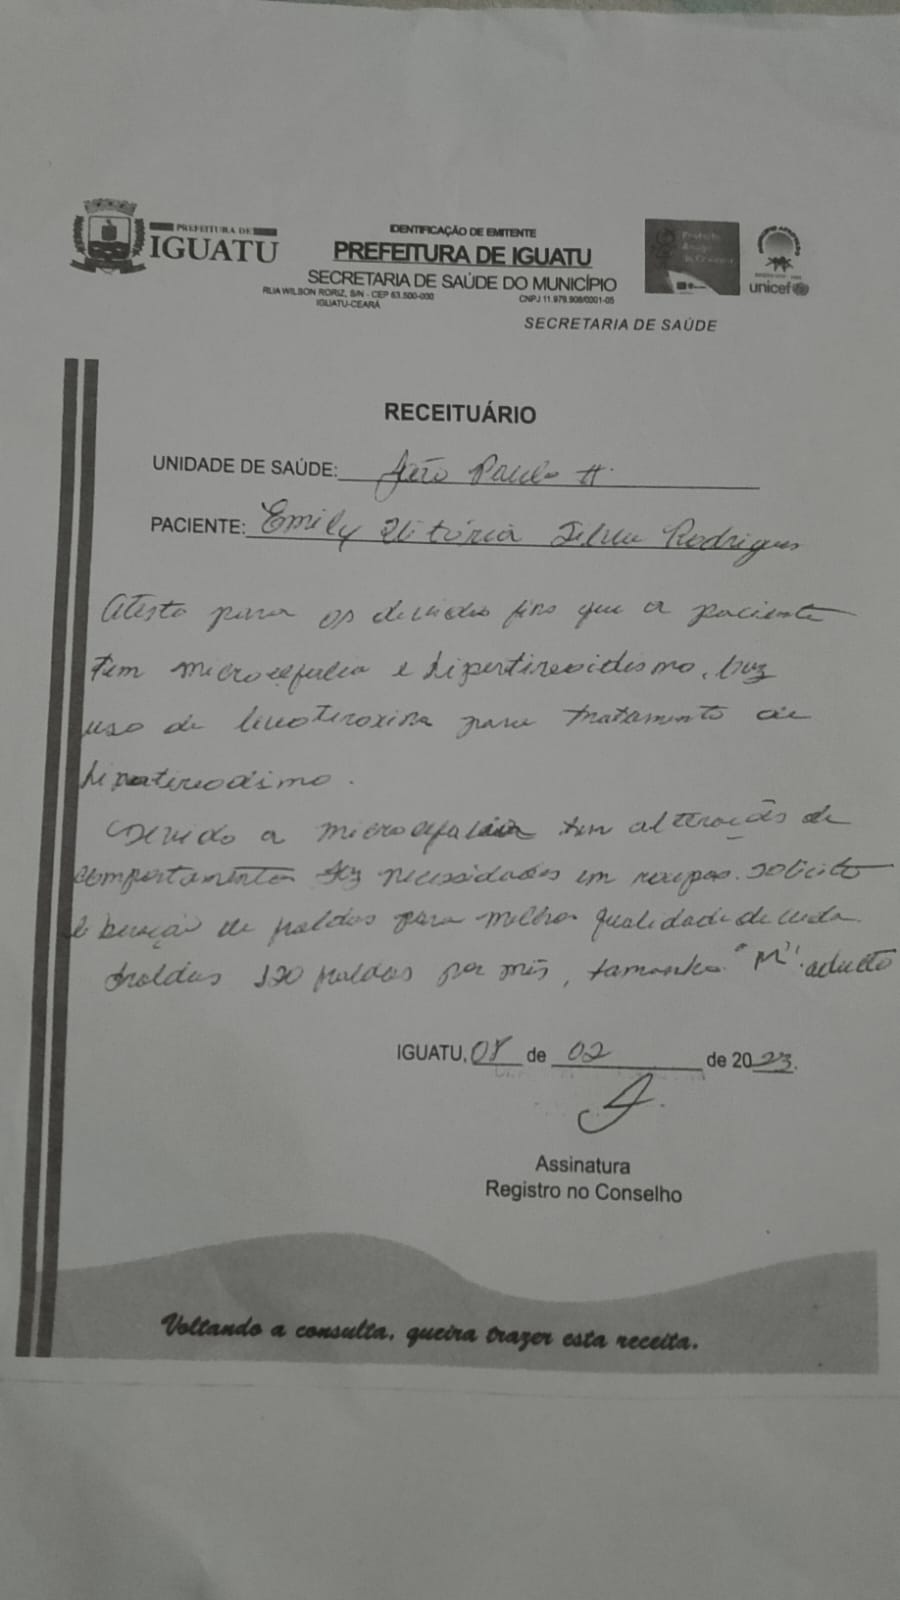 PREFEITURA DE
IGUATU
IDENTIFICAÇÃO DE EMITENTE
PREFEITURA DE IGUATU
SECRETARIA DE SAÚDE DO MUNICÍPIO
RUA WILSON RORIZ, S/N - CEP 63.500-000
CNPJ 11.979.908/0001-05
IGUATU-CEARÁ
unicef
SECRETARIA DE SAÚDE
RECEITUÁRIO
UNIDADE DE SAÚDE: João Paulo II
PACIENTE: Emily Vitória Silva Rodrigues
Atesto para os devidos fins que a paciente
tem microcefalia e hipertireoidismo, faz
uso de levotiroxina para tratamento de
Devido a microcefalia tem alterações de
comportamento faz necessidades em roupas. solicito
de fraldas para melhor qualidade de vida.
fraldas 120 fraldas por mês, tamanho "M". adulto
IGUATU, 08 de 02 de 2023.
Assinatura
Registro no Conselho
Voltando a consulta, queira trazer esta receita.